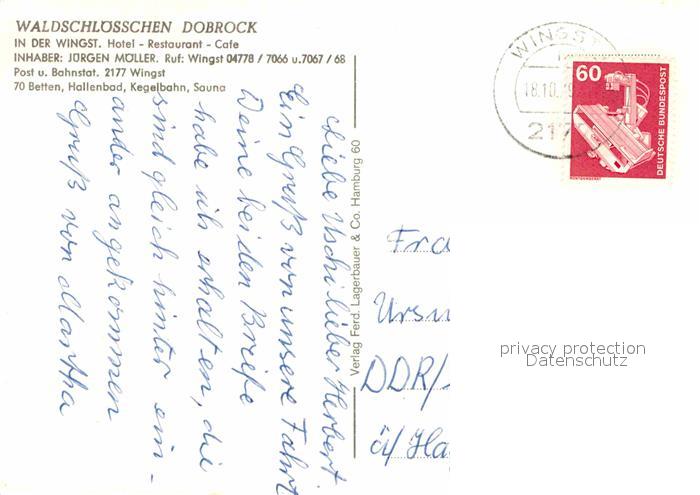 WALDSCHLÖSSCHEN DOBROCK
IN DER WINGST. Hotel - Restaurant - Cafe
INHABER: JÜRGEN MÜLLER. Ruf: Wingst 04778 / 7066 u.7067 / 68
Post u. Bahnstat. 2177 Wingst
70 Betten, Hallenbad, Kegelbahn, Sauna
Liebe Uschi lieber Herbert
Ein Gruß von unsere Fahrt
Deine beiden Briefe
habe ich erhalten, die
sind gleich hinter ein-
ander angekommen
Gruß von Martha
Verlag Ferd. Lagerbauer & Co. Hamburg 60
WINGST
18.10.
217
60
DEUTSCHE BUNDESPOST
Fra
Ursu
DDR/
ü/ Ha
privacy protection
Datenschutz